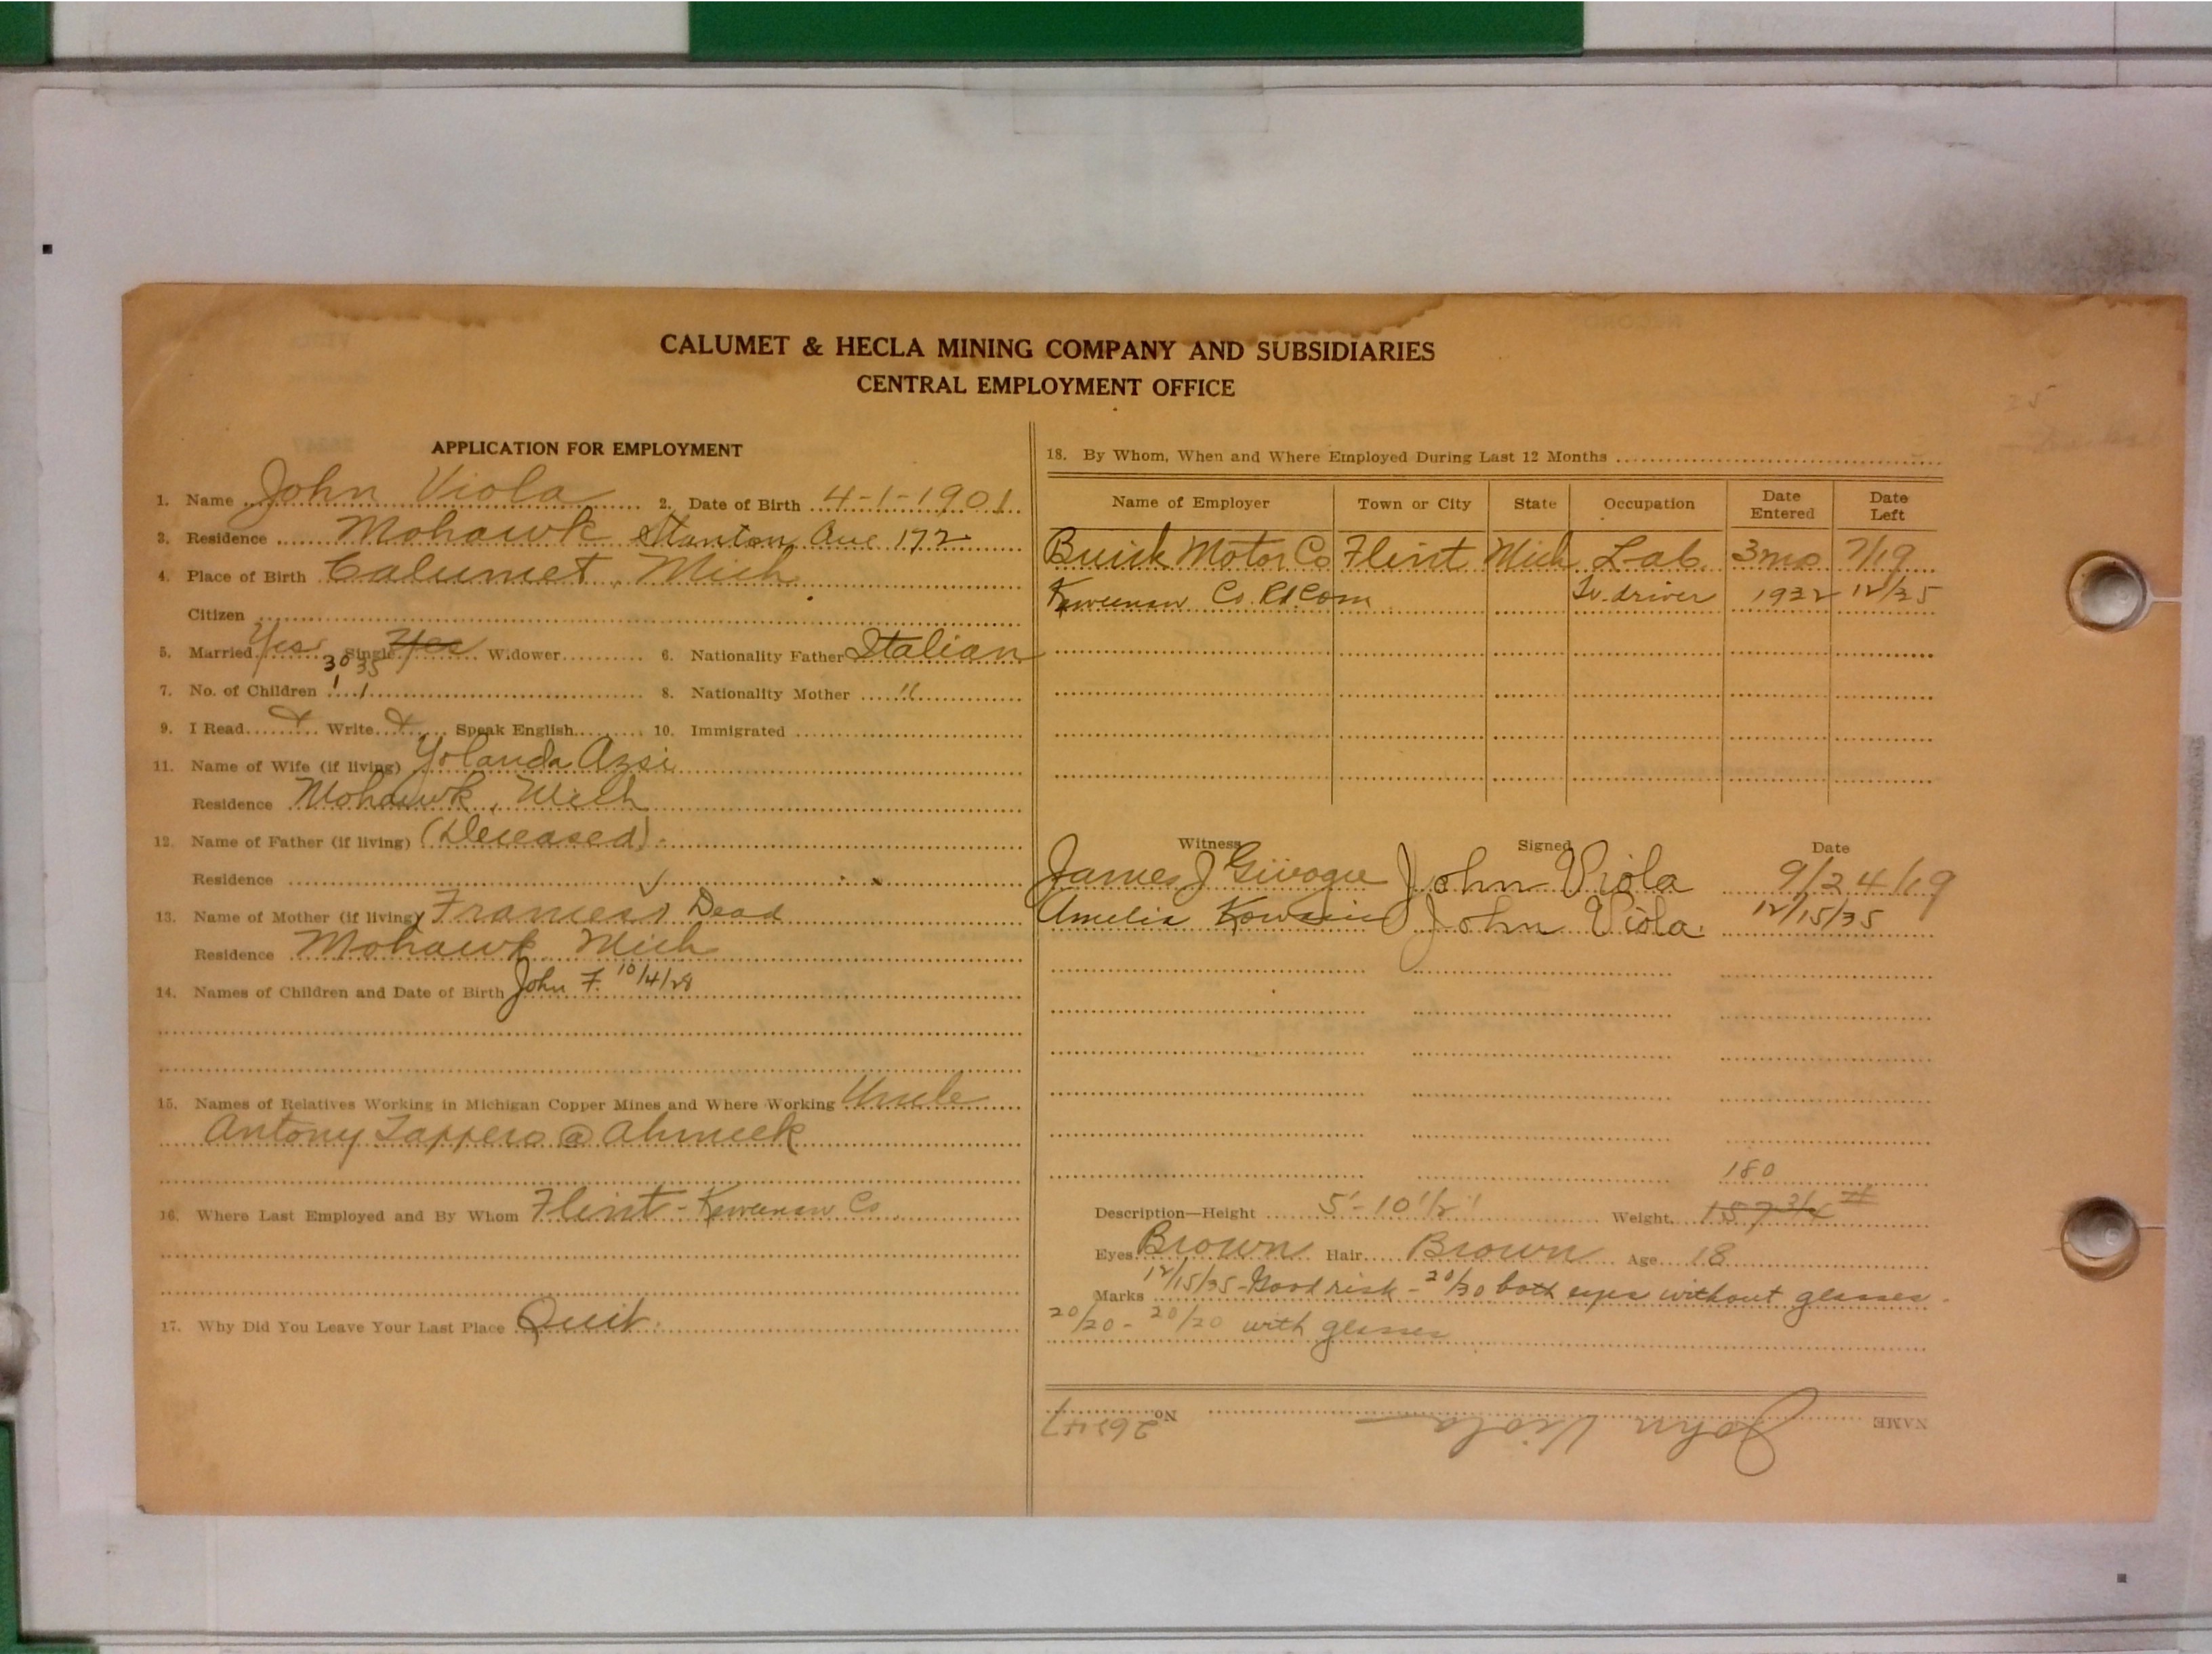 CALUMET & HECLA MINING COMPANY AND SUBSIDIARIES
CENTRAL EMPLOYMENT OFFICE
APPLICATION FOR EMPLOYMENT
1. Name John Viola 2. Date of Birth 4-1-1901
3. Residence Mohawk Stanton Ave 172
4. Place of Birth Calumet, Mich
Citizen
5. Married Yes Single Yes Widower 6. Nationality Father Italian
30 35
7. No. of Children 1 1 8. Nationality Mother "
9. I Read Write Speak English 10. Immigrated
11. Name of Wife (if living) Yolanda Azsi
Residence Mohawk, Mich
12. Name of Father (if living) (Deceased)
Residence
13. Name of Mother (if living) Frances Dead
Residence Mohawk Mich
14. Names of Children and Date of Birth John F. 10/4/28
15. Names of Relatives Working in Michigan Copper Mines and Where Working Uncle
Antony Zappero @ Ahmeek
16. Where Last Employed and By Whom Flint - Keweenaw Co
17. Why Did You Leave Your Last Place Quit
18. By Whom, When and Where Employed During Last 12 Months
Name of Employer Town or City State Occupation Date Entered Date Left
Buick Motor Co Flint Mich Lab 3 mo 7/19
Keweenaw Co. Rd. Com Tr. driver 1932 12/35
Witness Signed Date
James J John Viola 9/24/19
Amelia John Viola 12/15/35
180
Description—Height 5'-10 1/2" Weight 157 3/4 #
Eyes Brown Hair Brown Age 18
Marks 12/15/35 - Good risk - 20/30 both eyes without glasses -
20/20 - 20/20 with glasses
NAME John Viola No. 26247